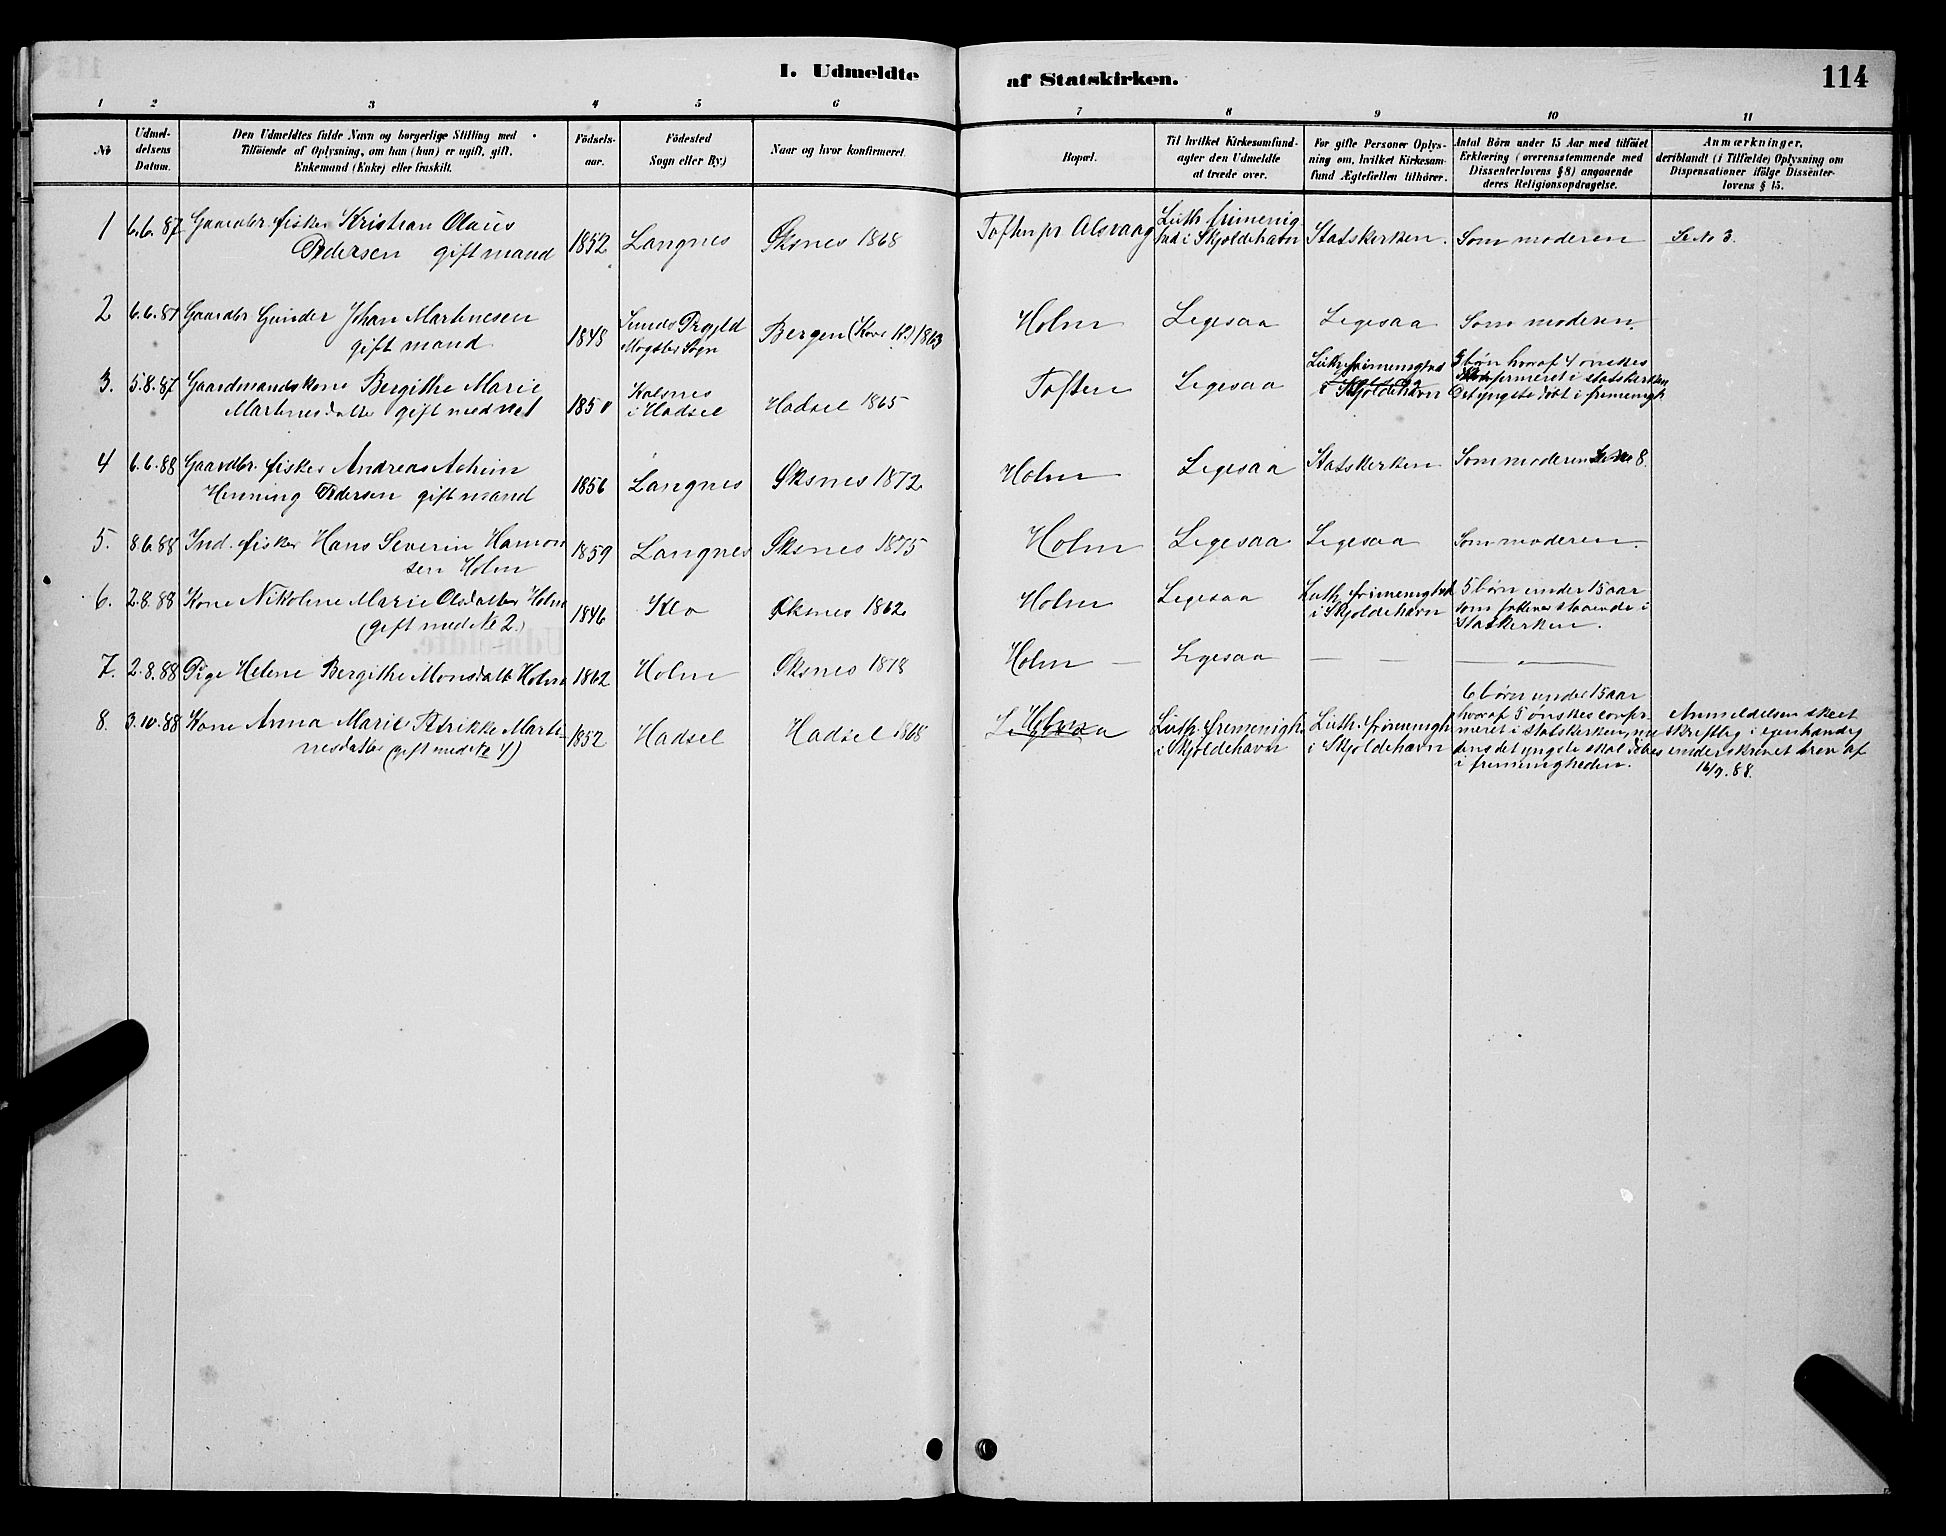 I. Udmeldte af Statskirken. 114
1 2 3 4 5 6 7 8 9 10 11
No
Udmeldelsens Datum.
Den Udmeldtes fulde Navn og borgerlige Stilling med
Tilföiende af Oplysning, om han (hun) er ugift, gift,
Enkemand (Enke) eller fraskilt.
Födselsaar.
Födested
Sogn eller By.)
Naar og hvor konfirmeret.
Bopæl.
Til hvilket Kirkesamfund
agter den Udmeldte
at træde over.
For gifte Personer Oplysning
om, hvilket Kirkesamfund
Ægtefællen tilhörer.
Antal Börn under 15 Aar med tilföiet
Erklæring (overensstemmende med
Dissenterlovens § 8) angaaende
deres Religionsopdragelse.
Anmærkninger,
deriblandt (i Tilfælde) Oplysning om
Dispensationer ifölge Dissenterlovens
§ 15.
1 6.6.87 Gaardbr. fisker Kristian Olaus
Pedersen gift mand 1852 Langnes Øksnes 1868 Toften pr Alsvaag Luth. frimenig
hed i Skjoldehavn Statskirken. Som moderen Se No 3.
2 6.6.87 Gaardbr Gunder Johan Martinesen
gift mand 1848 Sunds Prgjld
Mogster Sogn Bergen (Kors K) 1863 Holm Ligesaa Ligesaa Som moderen.
3. 5.8.87 Gaardmandskone Bergithe Marie
Martinesdatter gift med No 1 1850 Kalsnes
i Hadsel Hadsel 1865 Toften Ligesaa Luth. frimenighed
i Skjoldehavn 5 børn hvoraf 4 ønskes
konfirmeret i statskirken
Det yngste døbt i frimenigh.
4 6.6.88 Gaardbr. fisker Andreas Achim
Henning Pedersen gift mand 1856 Langnes Øksnes 1872 Holm Ligesaa Statskirken Som moderen Se No 8.
5. 8.6.88 Ind. fisker Hans Severin Hanson
sen Holm 1859 Langnes Øksnes 1875 Holm Ligesaa Ligesaa Som moderen.
6. 2.8.88 Kone Nikoline Marie Olsdatter Holm
(gift med No 2.) 1846 Klo Øksnes 1862 Holm Ligesaa Luth. frimenighed
i Skjoldehavn 5 børn under 15 aar
som forbliver staaende i
Statskirken.
7. 2.8.88 Pige Helene Bergithe Monsdatt. Holm 1862 Holm Øksnes 1878 Holm Ligesaa
8. 3.10.88 Kone Anna Marie Petrikke Marti-
nesdatter (gift med No 4) 1852 Hadsel Hadsel 1868 Holm Luth. frimenigh.
i Skjoldehavn Luth. frimenigh
i Skjoldehavn 6 børn under 15 aar
hvoraf 5 ønskes confir
meret i Statskirken, me
dens det yngste skal døbes
i frimenigheden. Anmeldelsen skeet
skriftlig i egenhændig
underskrevet brev af
16/9.88.